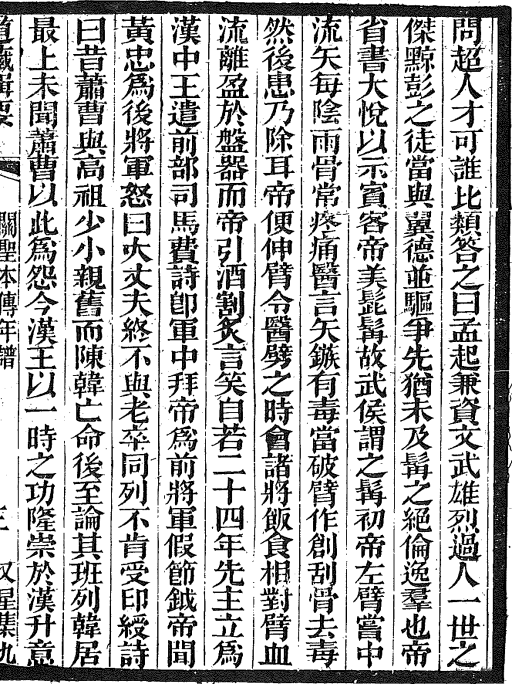 問超人才可誰比類答之曰孟起兼資文武雄烈過人一世之
傑黥彭之徒當與翼德並驅爭先猶未及髯之絕倫逸羣也帝
省書大悅以示賓客帝美髭髯故武侯謂之髯初帝左臂嘗中
流矢每陰雨骨常疼痛醫言矢鏃有毒當破臂作創刮骨去毒
然後患乃除耳帝便伸臂令醫劈之時會諸將飯食相對臂血
流離盈於盤器而帝引酒割炙言笑自若二十四年先主立爲
漢中王遣前部司馬費詩卽軍中拜帝爲前將軍假節鉞帝聞
黃忠爲後將軍怒曰大丈夫終不與老卒同列不肯受印綬詩
曰昔蕭曹與高祖少小親舊而陳韓亡命後至論其班列韓居
最上未聞蕭曹以此爲怨今漢王以一時之功隆崇於漢升意
道藏輯要 關聖本傳年譜 三 又星集九